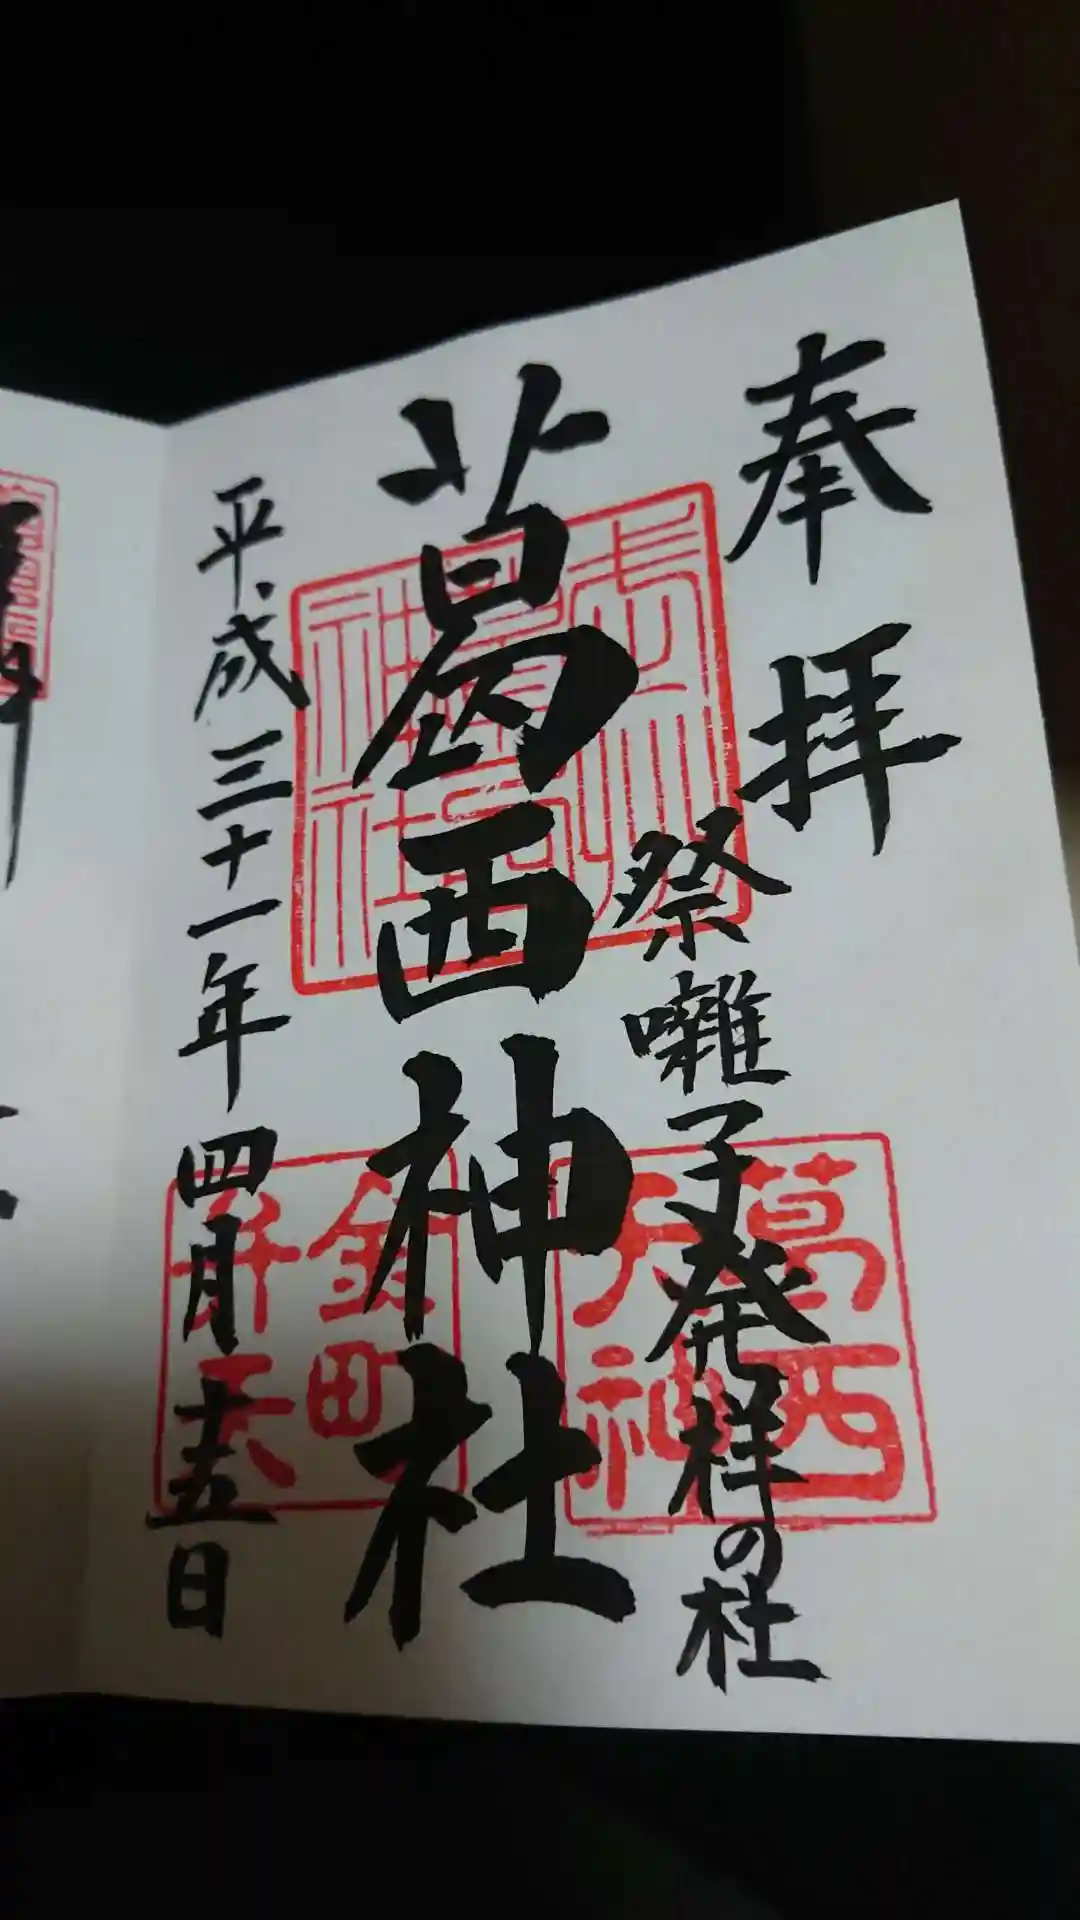 奉拝
祭囃子発祥の杜
葛西神社
平成三十一年四月十五日
葛西
天神
金町
弁天
葛西
神社